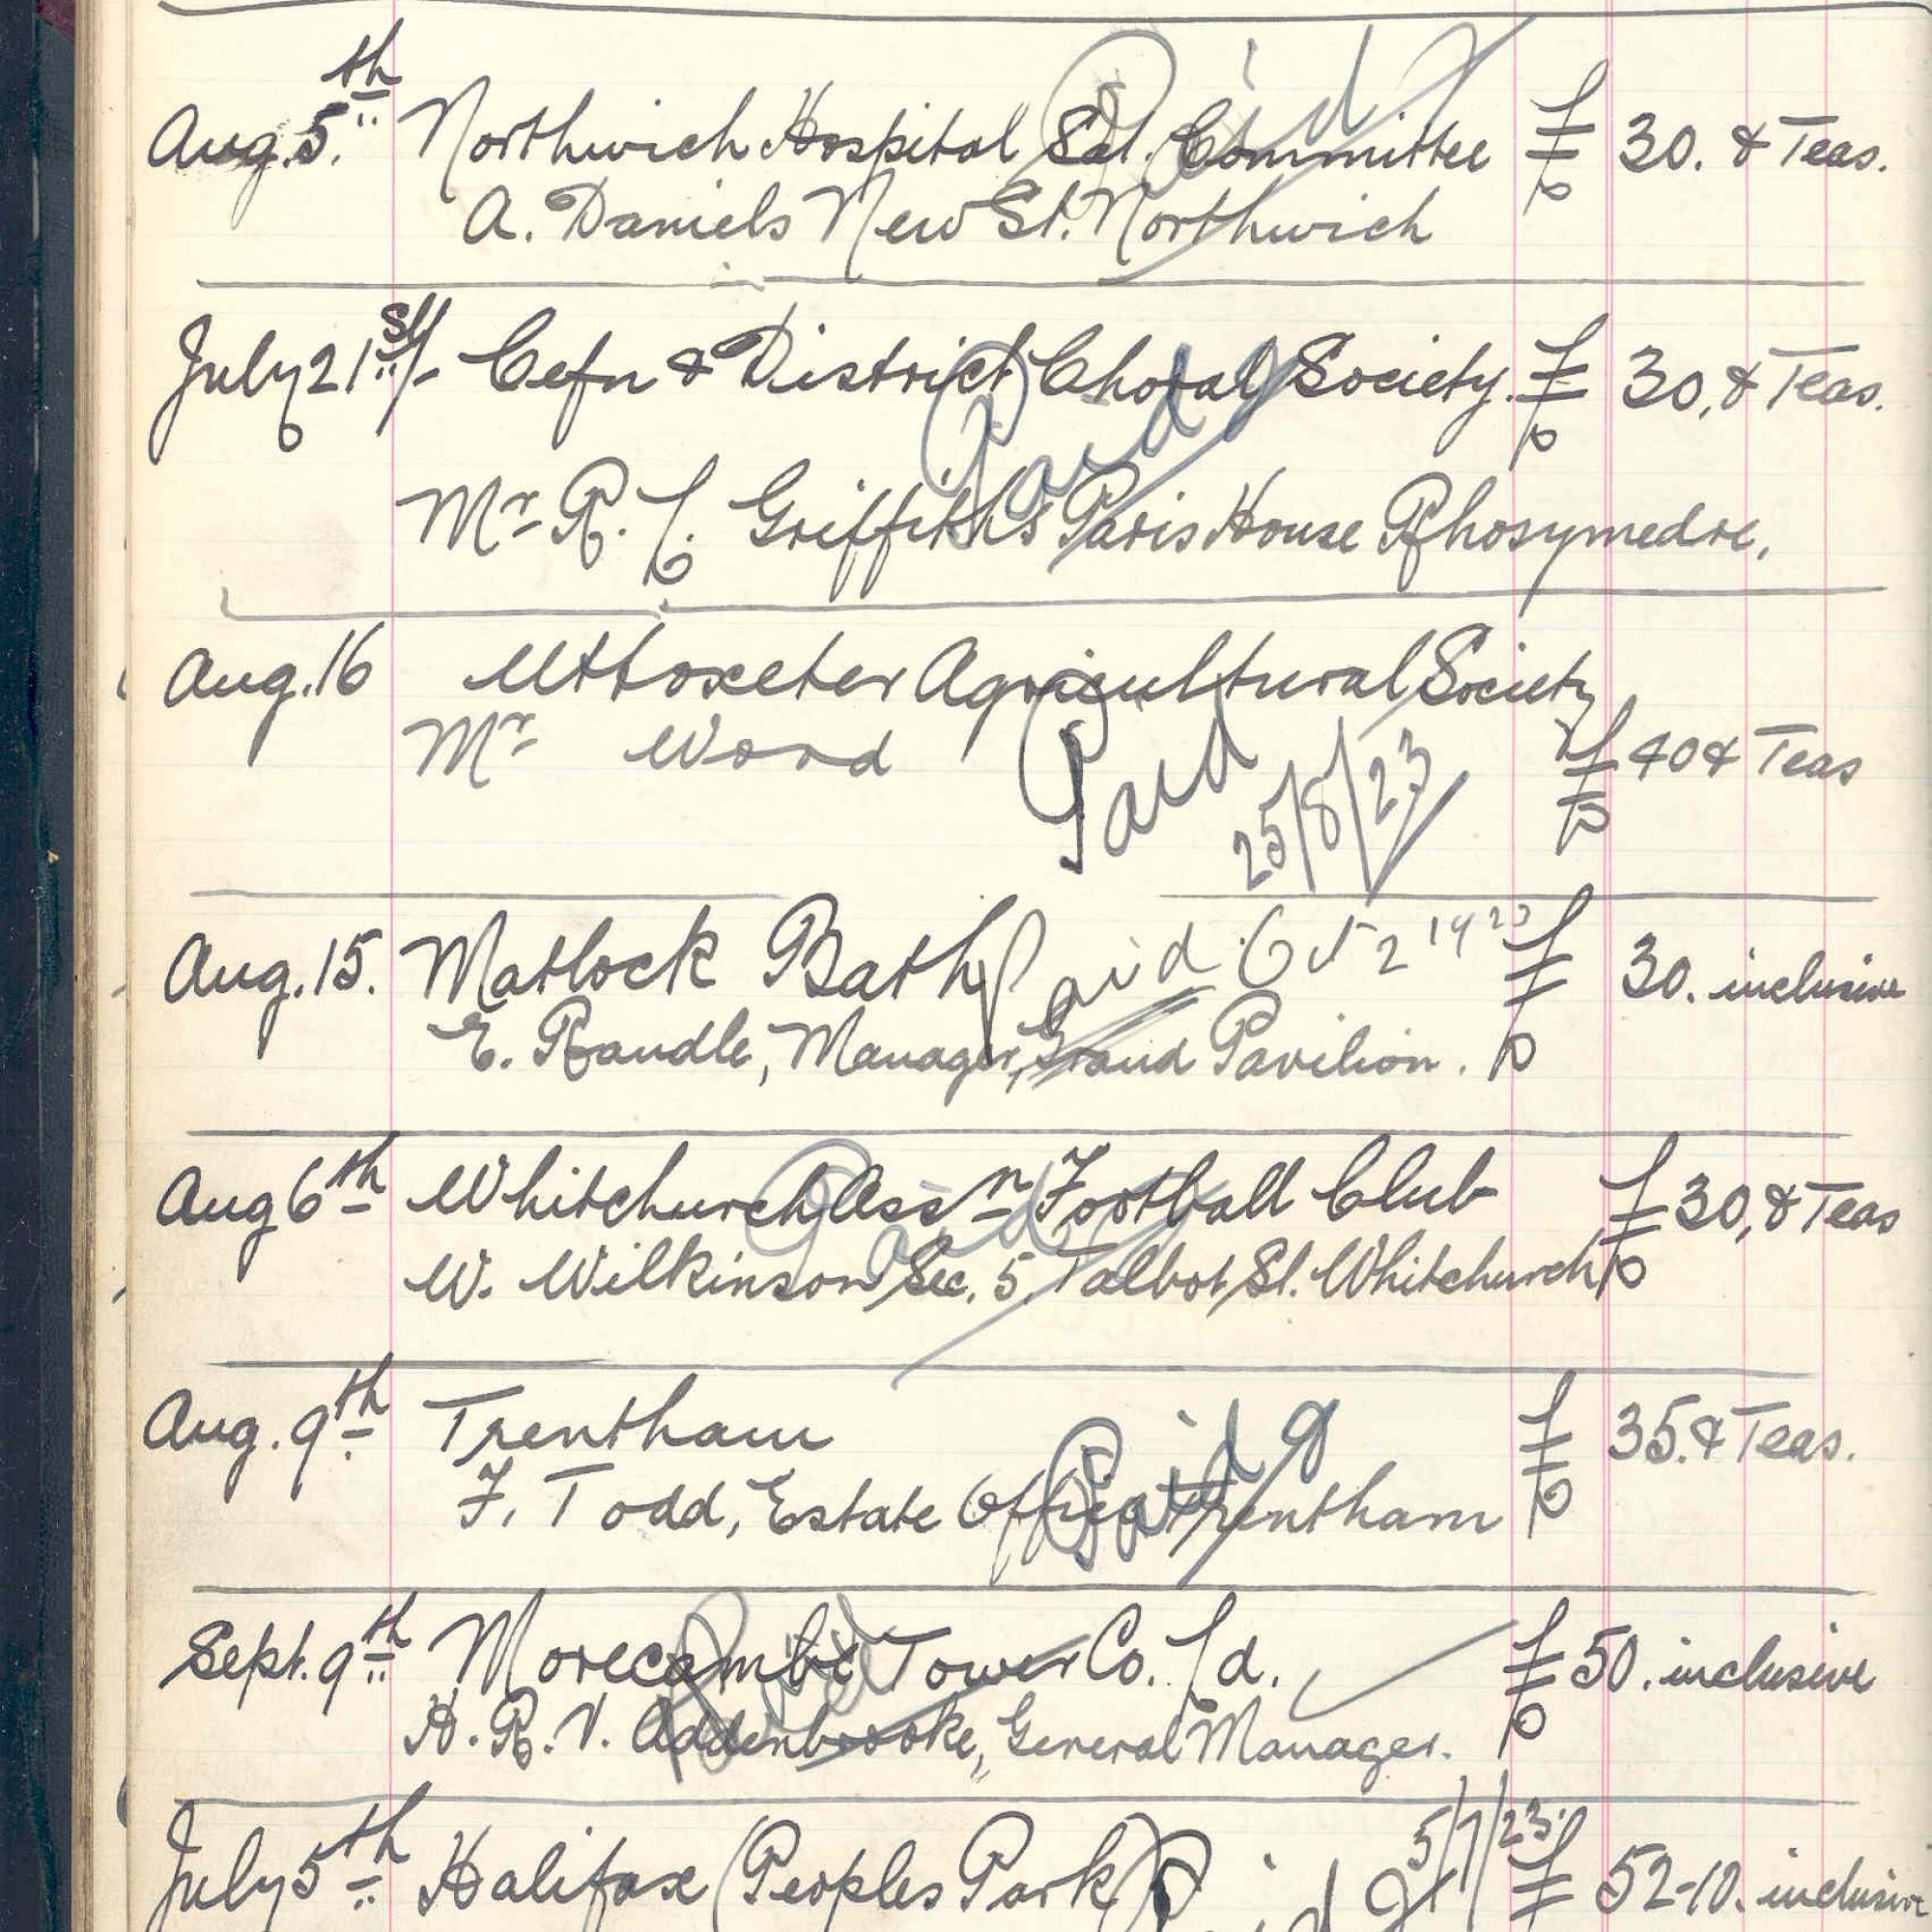 Aug. 5.th Northwich Hospital Sat. Committee £ 30. & Teas.
A. Daniels New St. Northwich
Paid
July 21st/- Cefn & District Choral Society. £ 30, & Teas.
Mr R. L. Griffiths Paris House Rhosymedre.
Paid
Aug. 16 Uttoxeter Agricultural Society
Mr Wood £ 40 & Teas
Paid
25/8/23
Aug. 15. Matlock Bath Paid Oct 2 1923 £ 30. inclusive
E. Randle, Manager, Grand Pavilion.
Aug 6th Whitchurch Assn Football Club £ 30, & Teas
W. Wilkinson Sec. 5, Talbot St. Whitchurch
Paid
Aug. 9th Trentham £ 35. & Teas.
F. Todd, Estate Office Trentham
Paid
Sept. 9th Morecambe Tower Co. Ld. £ 50. inclusive
H. R. V. Addenbrooke, General Manager.
Paid
July 5th Halifax (Peoples Park) Paid 5/7/23. £ 52-10. inclusive